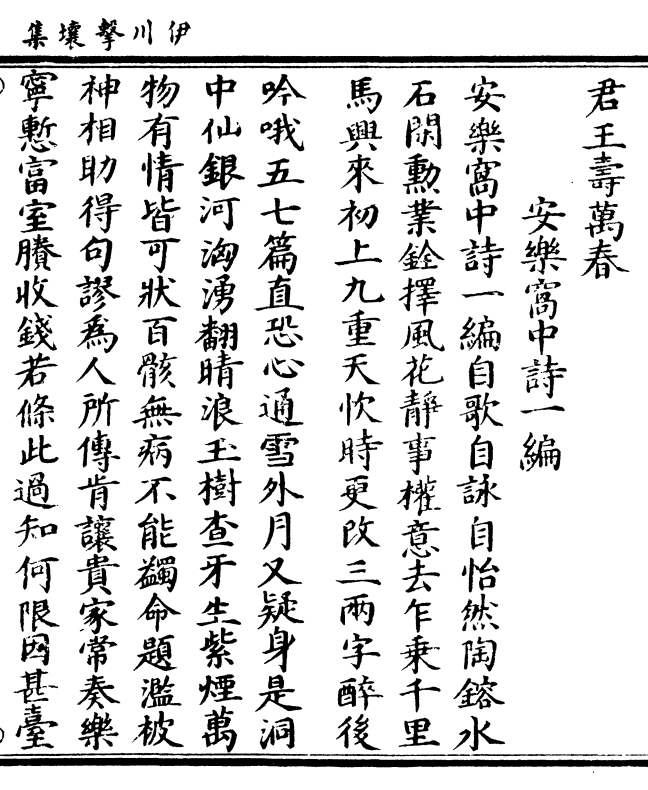 伊川擊壤集
君王壽萬春
安樂窩中詩一編
安樂窩中詩一編自歌自詠自怡然陶鎔水
石閑勲業銓擇風花靜事權意去乍乗千里
馬興來初上九重天忺時更改三兩字醉後
吟哦五七篇直恐心通雪外月又疑身是洞
中仙銀河洶湧翻晴浪玉樹查牙生紫煙萬
物有情皆可狀百骸無病不能蠲命題濫被
神相助得句謬為人所傳肯讓貴家常奏樂
寧慙富室賸收錢若條此過知何限因甚臺